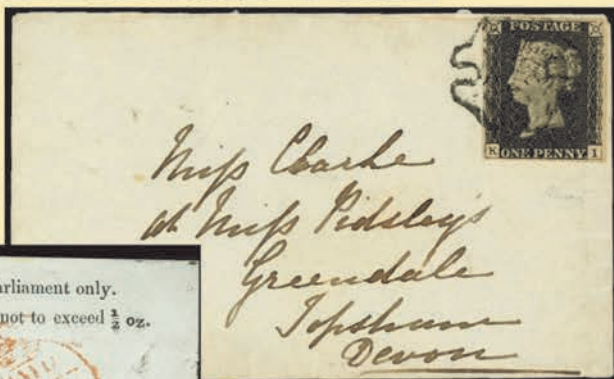 POSTAGE
K ONE PENNY I
Miss Clarke
at Miss Pidsley's
Greendale
Topsham
Devon
arliament only.
not to exceed ½ oz.